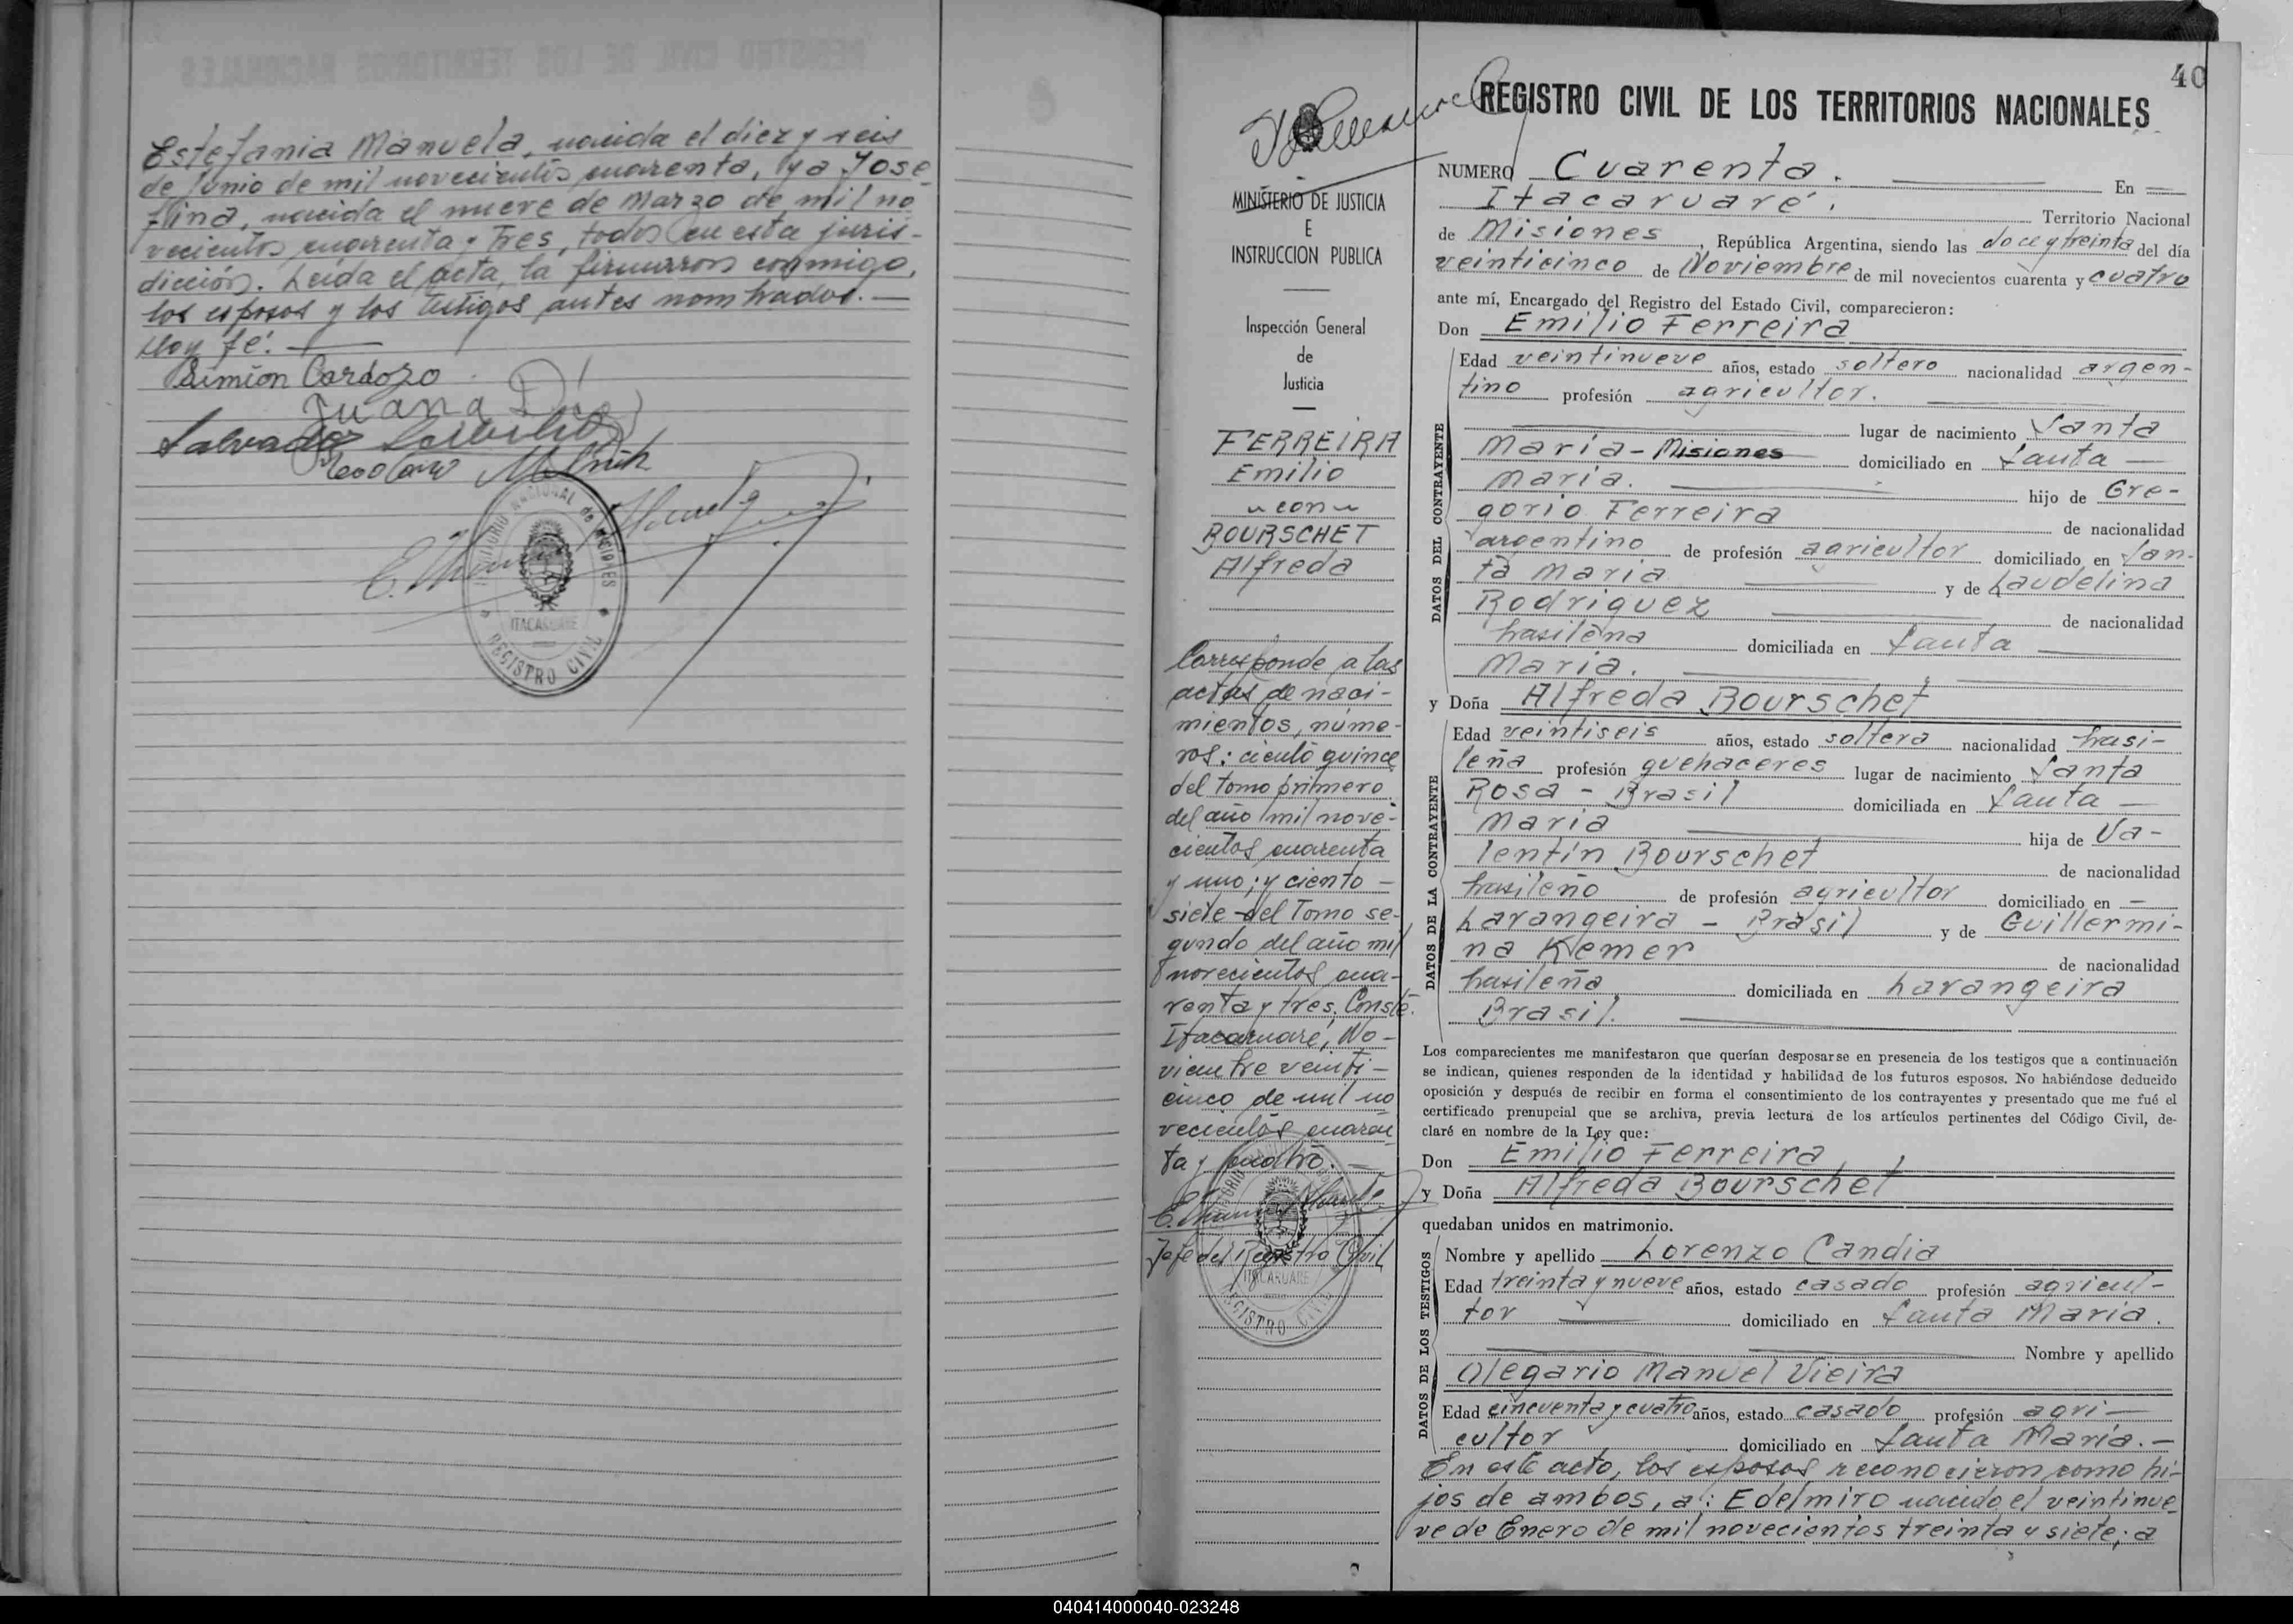 Estefania Manuela, nacida el diez y seis
de Junio de mil novecientos cuarenta, y a Jose-
flina, nacida el nueve de Marzo de mil no
vecientos cuarenta y tres, todos en esta juris-
dicción. Leída el acta, la firmaron conmigo,
los esposos y los testigos antes nombrados.—
Doy fé.
Simión Cardozo
Juana D
Salvador
TERRITORIO NACIONAL de MISIONES
ITACARUARE
REGISTRO CIVIL
MINISTERIO DE JUSTICIA
E
INSTRUCCION PUBLICA
Inspección General
de
Justicia
FERREIRA
Emilio
con
BOURSCHET
Alfreda
Corresponde a las
actas de naci-
mientos, núme-
ros: ciento quince
del Tomo primero
del año mil nove-
cientos cuarenta
y uno; y ciento
siete del Tomo se-
gundo del año mil
novecientos cua-
renta y tres. Conste.
Itacaruaré, No-
viembre veinti-
cinco de mil no
vecientos cuaren
ta y cuatro.—
Jefe del Registro Civil
ITACARUARE
REGISTRO CIVIL
40
REGISTRO CIVIL DE LOS TERRITORIOS NACIONALES
NUMERO Cuarenta. En
Itacaruaré. Territorio Nacional
de Misiones, República Argentina, siendo las doce y treinta del día
veinticinco de Noviembre de mil novecientos cuarenta y cuatro
ante mí, Encargado del Registro del Estado Civil, comparecieron:
Don Emilio Ferreira
DATOS DEL CONTRAYENTE
Edad veintinueve años, estado soltero nacionalidad argen-
tino profesión agricultor.
lugar de nacimiento Santa
María-Misiones domiciliado en Santa
María. hijo de Gre-
gorio Ferreira de nacionalidad
argentino de profesión agricultor domiciliado en San-
ta Maria y de Laudelina
Rodriguez de nacionalidad
brasileña domiciliada en Santa
Maria.
y Doña Alfreda Bourschet
DATOS DE LA CONTRAYENTE
Edad veintiseis años, estado soltera nacionalidad brasi-
leña profesión quehaceres lugar de nacimiento Santa
Rosa - Brasil domiciliada en Santa
Maria hija de Va-
lentín Bourschet de nacionalidad
brasileño de profesión agricultor domiciliado en
Larangeira - Brasil y de Guillermi-
na Kemer de nacionalidad
brasileña domiciliada en Larangeira
Brasil.
Los comparecientes me manifestaron que querían desposarse en presencia de los testigos que a continuación
se indican, quienes responden de la identidad y habilidad de los futuros esposos. No habiéndose deducido
oposición y después de recibir en forma el consentimiento de los contrayentes y presentado que me fué el
certificado prenupcial que se archiva, previa lectura de los artículos pertinentes del Código Civil, de-
claré en nombre de la Ley que:
Don Emilio Ferreira
y Doña Alfreda Bourschet
quedaban unidos en matrimonio.
DATOS DE LOS TESTIGOS
Nombre y apellido Lorenzo Candia
Edad treinta y nueve años, estado casado profesión agricul-
tor domiciliado en Santa Maria.
Nombre y apellido
Olegario Manuel Vieira
Edad cincuenta y cuatro años, estado casado profesión agri-
cultor domiciliado en Santa María.—
En este acto, los esposos reconocieron como hi-
jos de ambos, a: Edelmiro nacido el veintinue
ve de Enero de mil novecientos treinta y siete; a
040414000040-023248